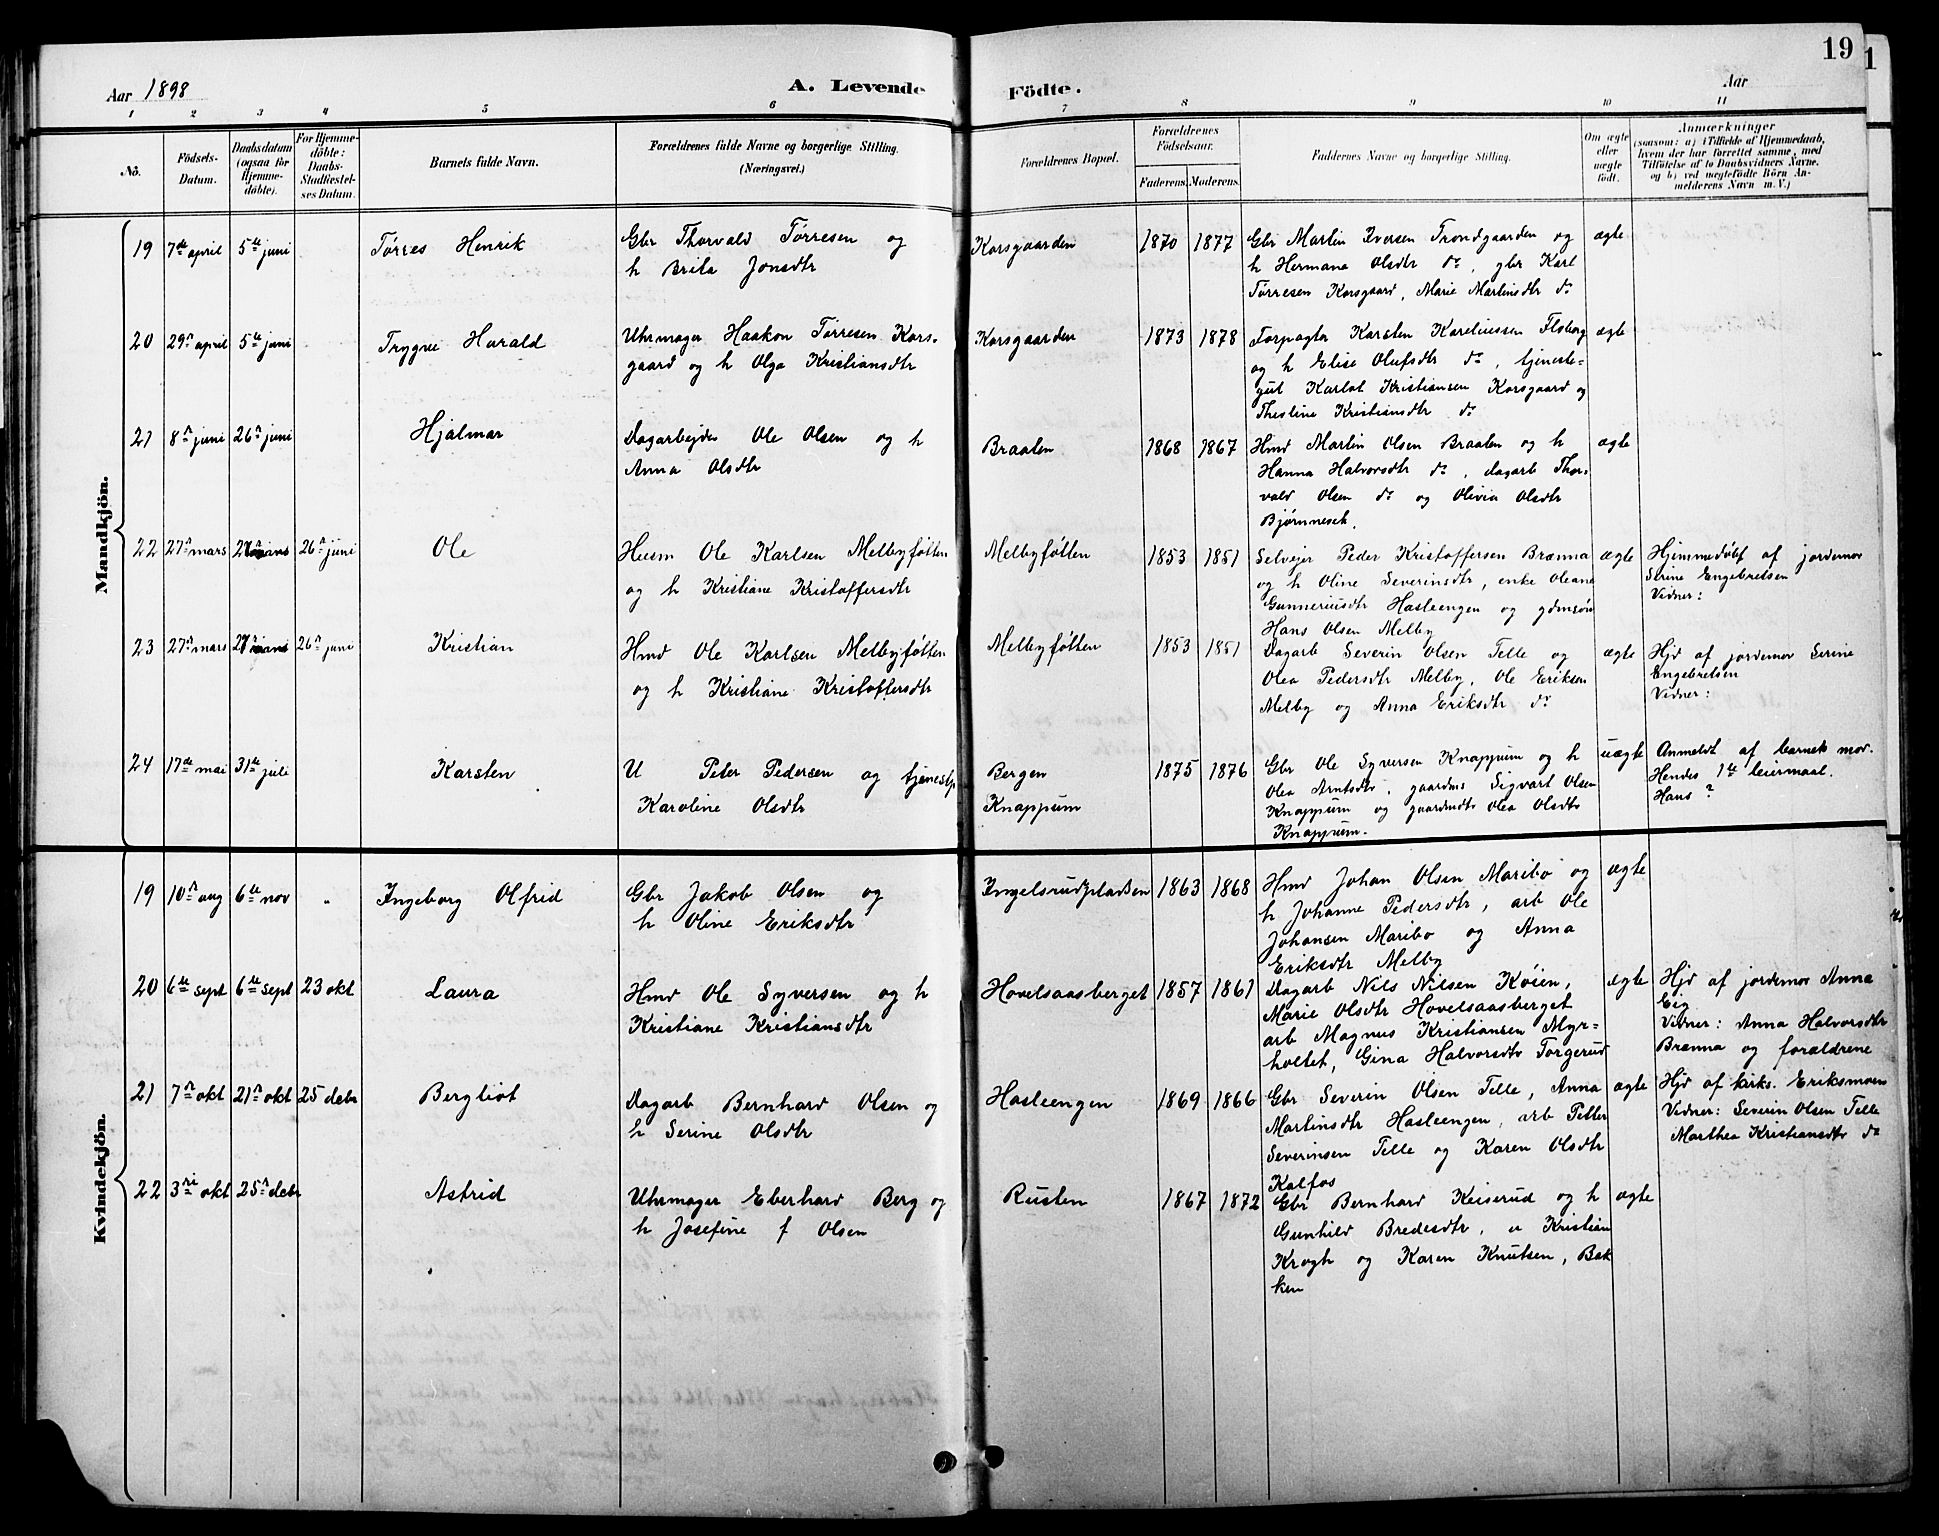 19
1
Aar 1898
A. Levende Födte.
Aar
1 2 3 4 5 6 7 8 9 10 11
No.
Födsels-
Datum.
Daabsdatum
(ogsaa for
Hjemme-
döbte).
For Hjemme-
döbte:
Daabs-
Stadfæstel-
ses Datum.
Barnets fulde Navn.
Forældrenes fulde Navne og borgerlige Stilling.
(Næringsvei.)
Forældrenes Bopæl.
Forældrenes
Födselsaar.
Faderens. Moderens.
Faddernes Navne og borgerlige Stilling.
Om ægte
eller
uægte
födt.
Anmærkninger
(saasom: a) i Tilfælde af Hjemmedaab,
hvem der har forrettet samme, med
Tilföielse af to Daabsvidners Navne.
og b) ved uægtefödte Börn An-
melderens Navn m. V.)
Mandkjön.
19 7de april 5te juni Tørres Henrik
Gbr Thorvald Tørresen og
h Brita Jonsdtr
Korsgaarden 1870 1877
Gbr Martin Iversen Trondgaarden og
h Hermana Olsdtr do, gbr Karl
Tørresen Korsgaard, Marie Martinsdtr do
ægte
20 29n april 5te juni Trygve Harald
Uhrmager Haakon Tørresen Kors-
gaard og h Olga Kristiansdtr
Korsgaarden 1873 1878
Forpagter Karsten Kareliussen Flsberg
og h Elise Olufsdtr do, tjeneste-
gut Karlot Kristiansen Korsgaard og
Thestine Kristiansdtr do
ægte
21 8n juni 26n juni Hjalmar
Dagarbejder Ole Olsen og h
Anna Olsdtr
Braaten 1868 1867
Hmd Martin Olsen Braaten og h
Hanna Halvorsdtr do, dagarb Thor-
vald Olsen do og Olivia Olsdtr
Bjørnneset.
ægte
22 27n mars 27n mars 26n juni Ole
Husm Ole Karlsen Melbyføtten
og h Kristiane Kristoffersdtr
Melbyføtten 1853 1851
Selvejer Peder Kristoffersen Brænna
og h Oline Severinsdtr, enke Oleane
Gunneriusdtr Hasleengen og gdmsøn
Hans Olsen Melby
ægte
Hjemmedøbt af jordemor
Serine Engebretsen
Vidner:
23 27n mars 27n mars 26n juni Kristian
Hmd Ole Karlsen Melbyføtten
og h Kristiane Kristoffersdtr
Melbyføtten 1853 1851
Dagarb Severin Olsen Telle og
Olea Pedersdtr Melby, Ole Eriksen
Melby og Anna Eriksdtr do
ægte
Hjd af jordemor Serine
Engebretsen
Vidner:
24 17de mai 31te juli Karsten
U Peter Pedersen og tjenestp
Karoline Olsdtr
Bergen
Knappum
1875 1876
Gbr Ole Syversen Knappum og h
Olea Arntsdtr, gaardms Sigvart Olsen
Knappum og gaardmdtr Olea Olsdtr
Knappum.
uægte
Anmeldt af barnets mor.
Hendes 1te leiermaal.
Hans ?
Kvindekjön.
19 10n aug 6te nov „ Ingeborg Olfrid
Gbr Jakob Olsen og
h Oline Eriksdtr
Ingelsrudpladsen 1863 1868
Hmd Johan Olsen Maribo og
h Johanne Pedersdtr, arb Ole
Johansen Maribo og Anna
Eriksdtr Melby
ægte
20 6te sept 6te sept 23 okt Laura
Hmd Ole Syversen og h
Kristiane Kristiansdtr
Hovelsaasberget 1857 1861
Dagarb Nils Nilsen Køien,
Marie Olsdtr Hovelsaasberget
arb Magnus Kristiansen Myr-
holtet, Gina Halvorsdtr Torgerud
ægte
Hjd af jordemor Anna
Eig
Vidner: Anna Halvorsdtr
Brænna og forældrene
21 7n okt 21n okt 25 debr Bergliot
Dagarb Bernhard Olsen og
h Serine Olsdtr
Hasleengen 1869 1866
Gbr Severin Olsen Telle, Anna
Martinsdtr Hasleengen, arb Petter
Severinsen Telle og Karen Olsdtr
Kalfos
ægte
Hjd af kirks. Eriksmoen
Vidner: Severin Olsen Telle
Marthea Kristiansdtr do
22 3di okt 25n debr Astrid
Uhrmager Eberhard Berg og
h Josefine f Olsen
Rusten 1867 1872
Gbr Bernhard Keiserud og h
Gunhild Bredesdtr, u Kristian
Krogh og Karen Knutsen, Bak
ken
ægte